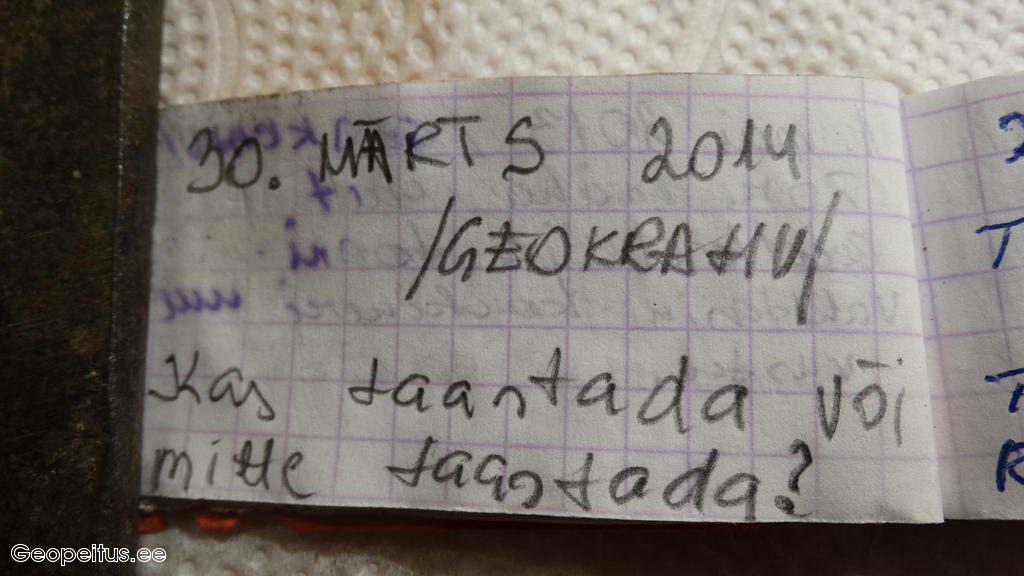 30. MÄRTS 2014
/GEOKRAHV/
Kas taastada või
mitte taastada?
Geopeitus.ee